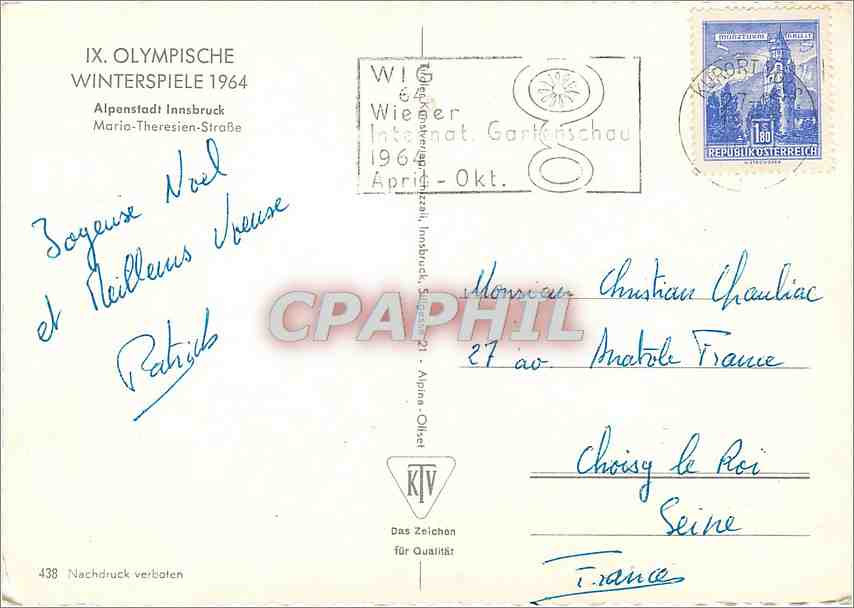 IX. OLYMPISCHE
WINTERSPIELE 1964
Alpenstadt Innsbruck
Maria-Theresien-Straße
Joyeuse Noel
et Meilleurs Voeux
Patrick
438 Nachdruck verboten
Tiroler Kunstverlag Chizzali, Innsbruck, Sillgasse 21 - Alpina-Offset
KTV
Das Zeichen
für Qualität
WIG
64
Wiener
Internat. Gartenschau
1964
April - Okt.
MÜNZTURM HALL I.T.
1.80
REPUBLIK ÖSTERREICH
KURORT
CPAPHIL
Monsieur Christian Chauliac
27 av. Anatole France
Choisy le Roi
Seine
France